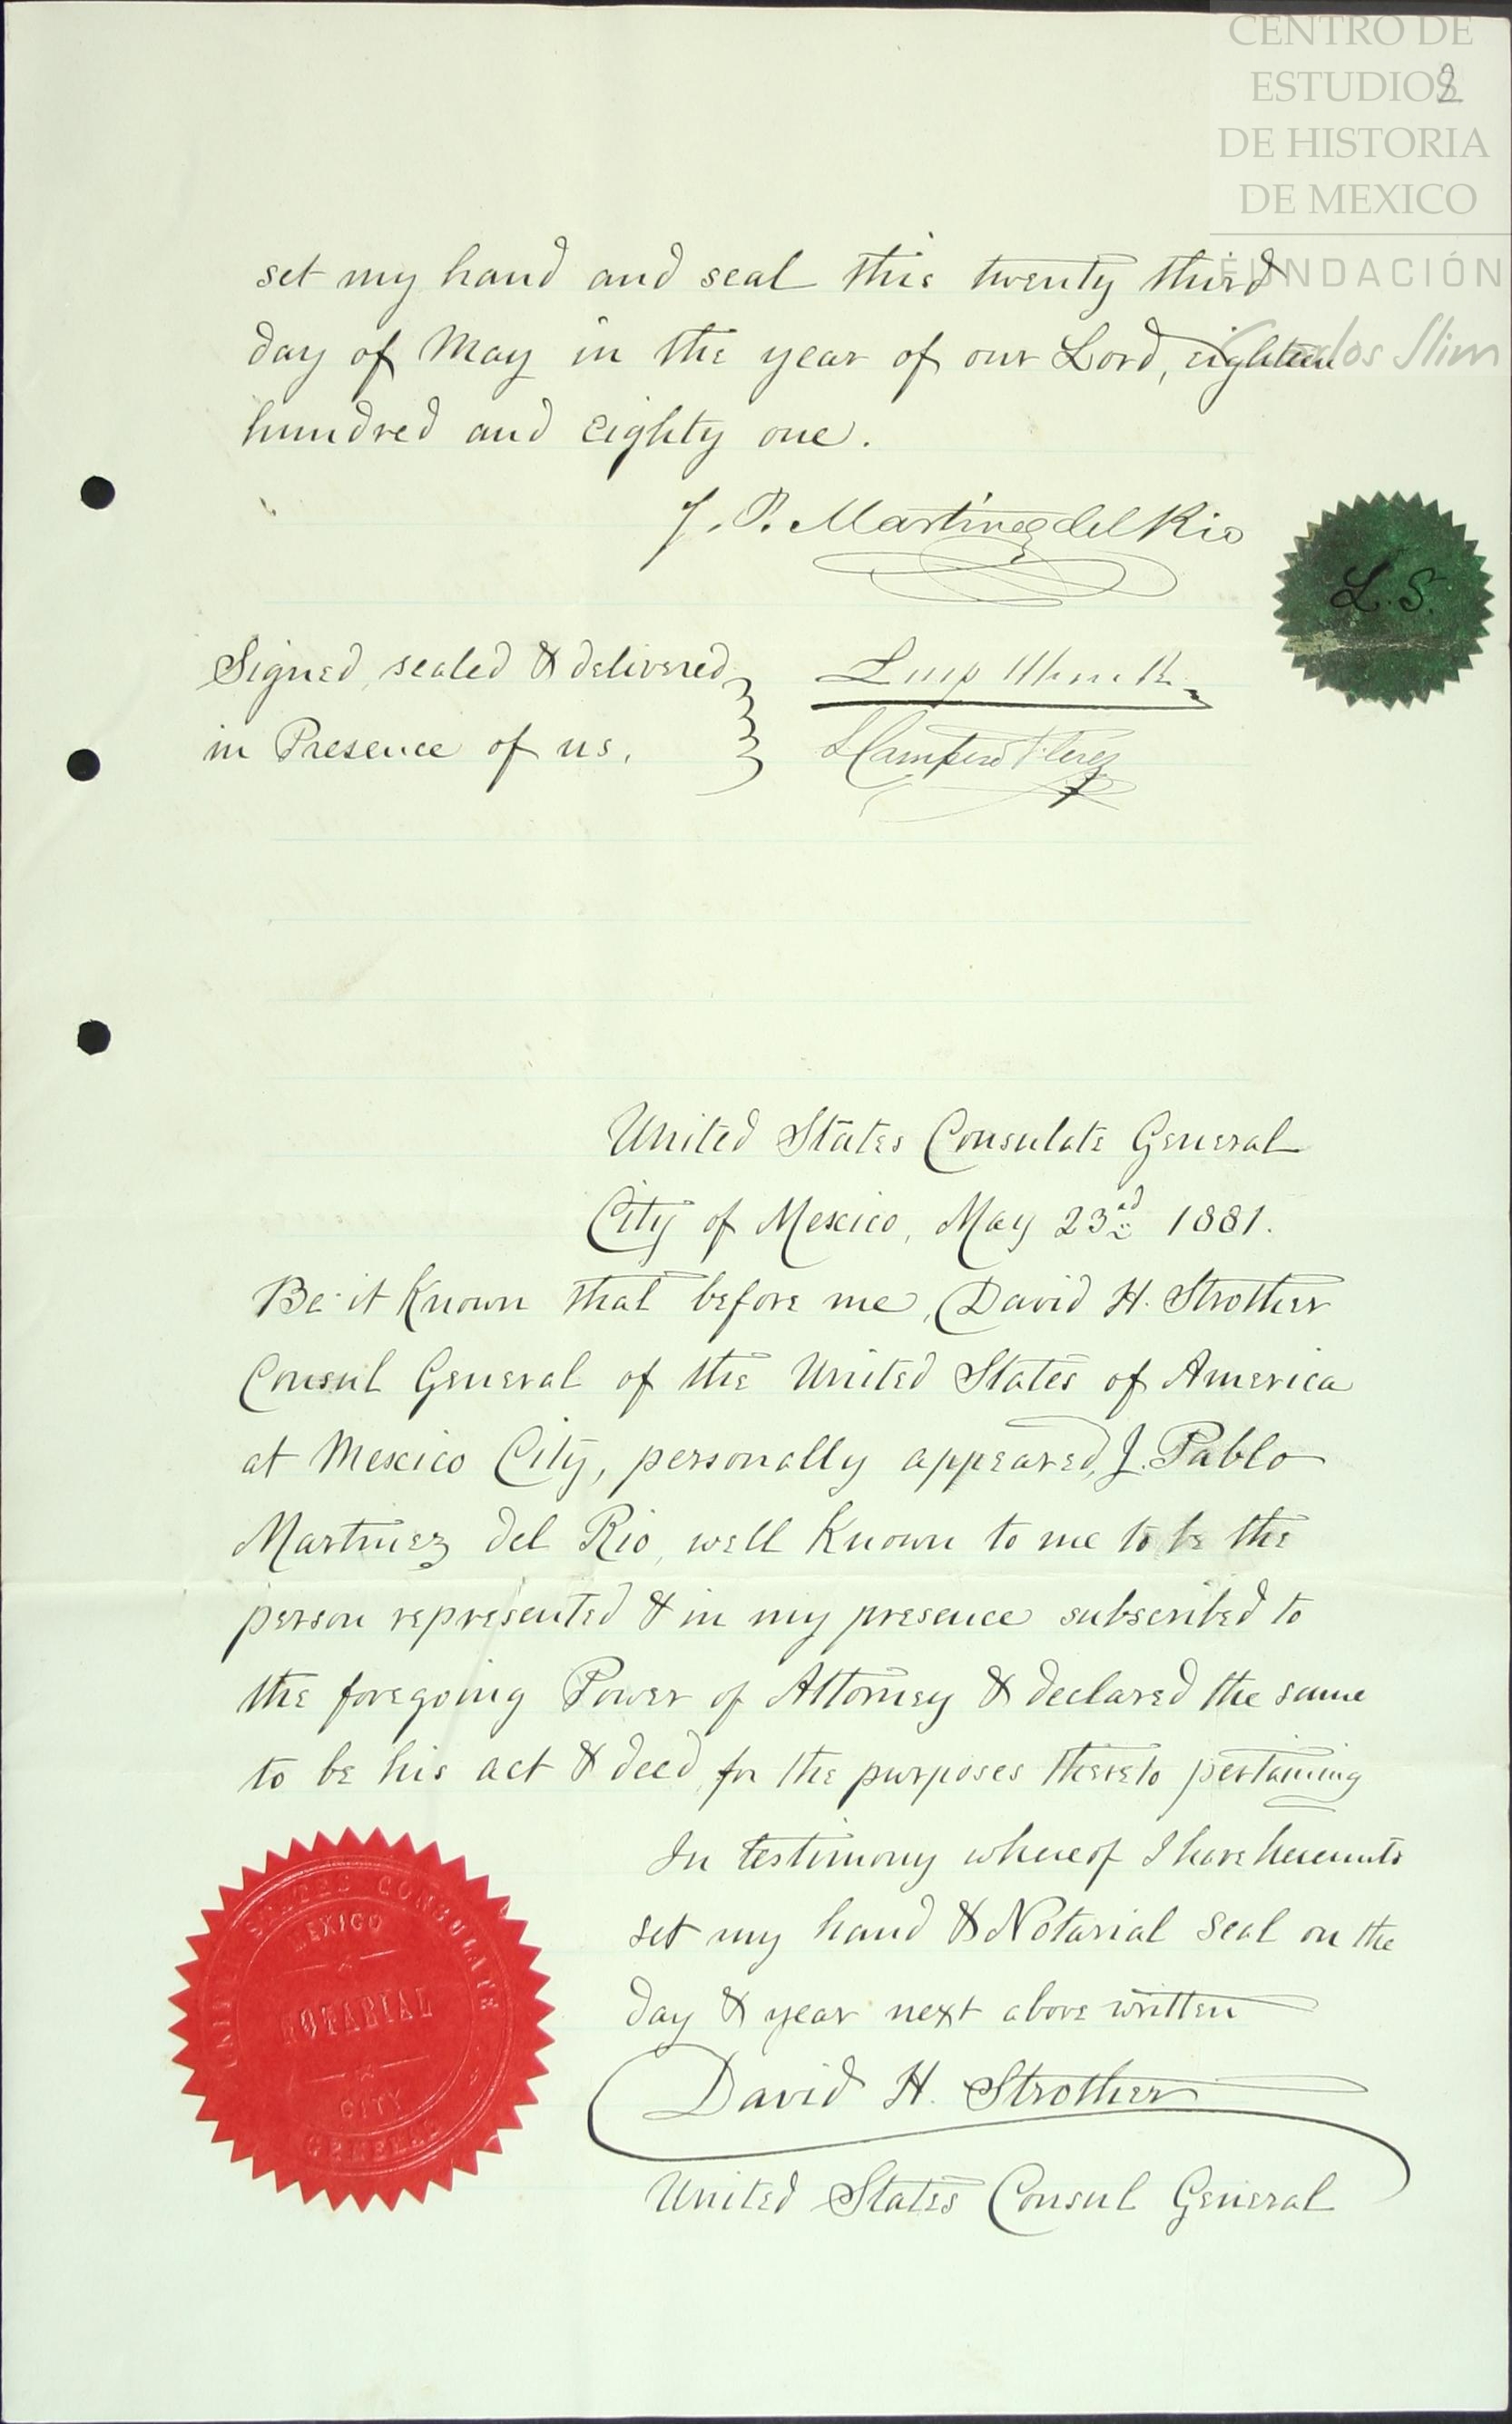 CENTRO DE
ESTUDIOS
2
DE HISTORIA
DE MEXICO
FUNDACIÓN
Carlos Slim
set my hand and seal this twenty third
day of May in the year of our Lord, eighteen
hundred and eighty one.
J. P. Martinez del Rio
L. S.
Signed, sealed & delivered
in Presence of us.
United States Consulate General
City of Mexico, May 23rd 1881.
Be it Known that before me, David H. Strother
Consul General of the United States of America
at Mexico City, personally appeared, J. Pablo
Martinez del Rio, well Known to me to be the
person represented & in my presence subscribed to
the foregoing Power of Attorney & declared the same
to be his act & deed for the purposes thereto pertaining
In testimony whereof I have hereunto
set my hand & Notarial Seal on the
day & year next above written
David H. Strother
United States Consul General
UNITED STATES CONSULATE
MEXICO
NOTARIAL
CITY
GENERAL